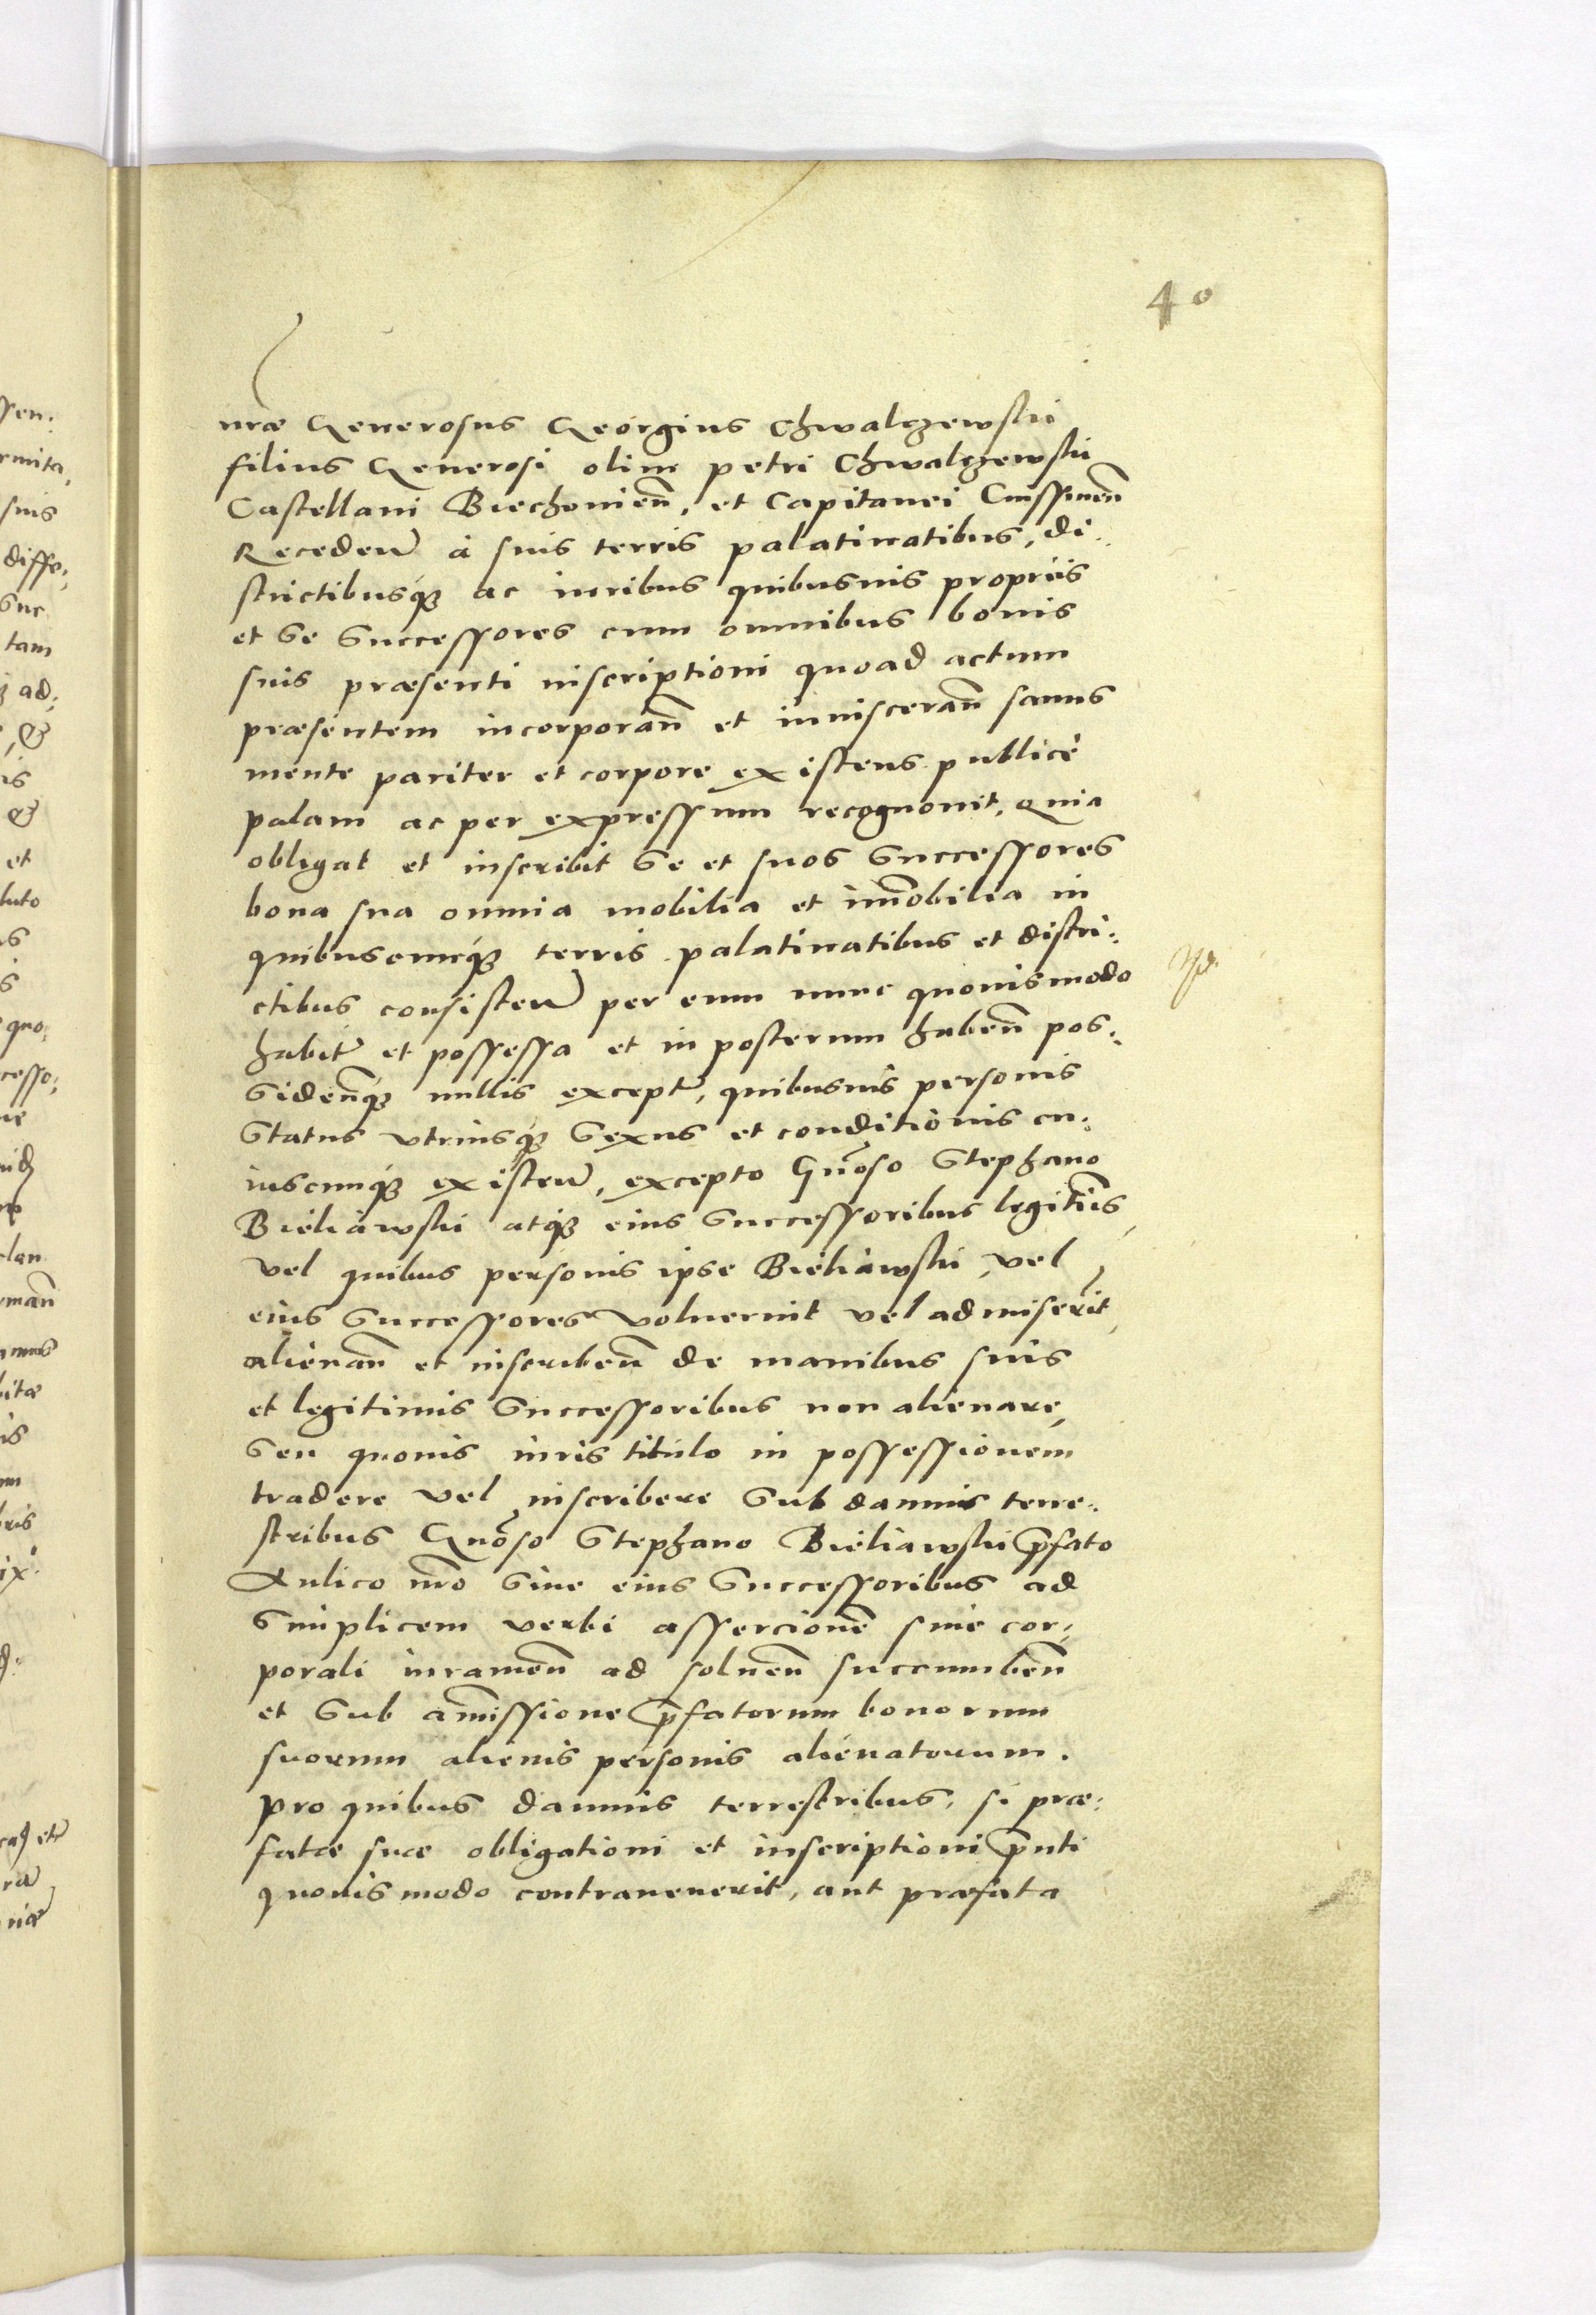 40
nrae Generosus Georgius Chwalczewski
filius Generosi olim petri Chwalczewski
Castellani Biechonien̄, et Capitanei
Receden̄ à suis terris palatinatibus, di-
strictibusq́ꝫ ac iuribus quibusuis propriis
et se successores cum omnibus bonis
suis praesenti inscriptioni quoad actum
praesentem incorporan̄ et inuisceran̄ sanus
mente pariter et corpore existens publicè
palam ac per expressum recognouit, quia
obligat et inscribit se et suos successores
bona sua omnia mobilia et im̄obilia in
quibuscumq́ꝫ terris palatinatibus et distri:
ctibus consisten̄ per eum nunc quouismodo
habit̄ et possessa et in posterum haben̄ pos:
siden̄q́ꝫ nullis except̄, quibusuis personis
status vtriusq́ꝫ sexus et conditionis cu:
iuscumq́ꝫ existen̄, excepto Gn̄oso Stephano
Bieliawski atq́ꝫ eius successoribus legitīs
vel quibus personis ipse Bieliawski vel
eius successores voluerint vel admiserīt
alienan̄ et inscriben̄ de manibus suis
et legitimis successoribus non alienare,
seu quouis iuris titulo in possessionem
tradere vel inscribere sub damnis terre:
stribus Gn̄oso Stephano Bieliawski p̄fato
Aulico nr̄o siue eius successoribus ad
simplicem verbi assercionē sine cor:
porali iuramen̄ ad soluen̄ succumben̄
et sub am̄issione p̄fatorum bonorum
suorum alienis personis alienatorum.
pro quibus damnis terrestribus, si prae:
fatae suae obligationi et inscriptioni p̄nti
quouis modo contrauenerit, aut praefata